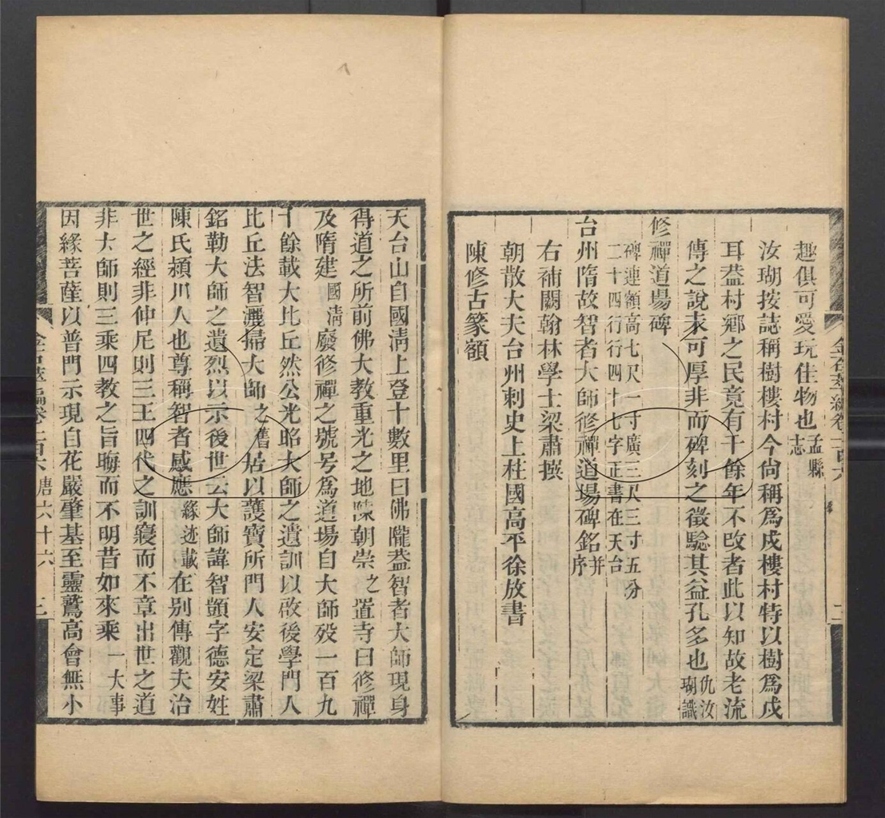 趣俱可愛玩佳物也孟縣志
汝瑚按誌稱樹樓村今尙稱爲戍樓村特以樹爲戍
耳葢村鄉之民竟有千餘年不攺者此以知故老流
傳之說未可厚非而碑刻之徵驗其益孔多也仇汝瑚識
修禪道場碑
碑連額高七尺一寸廣三尺三寸五分
二十四行行四十七字正書在天台
台州隋故智者大師修禪道場碑銘并序
右補闕翰林學士梁肅撰
朝散大夫台州刺史上柱國高平徐放書
陳修古篆額
金石萃編卷一百六
二
天台山自國淸上登十數里曰佛隴葢智者大師現身
得道之所前佛大教重光之地陳朝崇之置寺曰修禪
及隋建國淸廢修禪之號号爲道場自大師歿一百九
十餘載大比丘然公光昭大師之遺訓以啟後學門人
比丘法智灑掃大師之舊居以護寶所門人安定梁肅
銘勒大師之遺烈以示後世云大師諱智顗字德安姓
陳氏潁川人也尊稱智者感應緣迹載在别傳觀夫治
世之經非仲尼則三王四代之訓寢而不章出世之道
非大師則三乘四教之旨晦而不明昔如來乘一大事
因緣菩薩以普門示現自花嚴肇基至靈鷲高會無小
金石萃編卷一百六 唐六十六 三